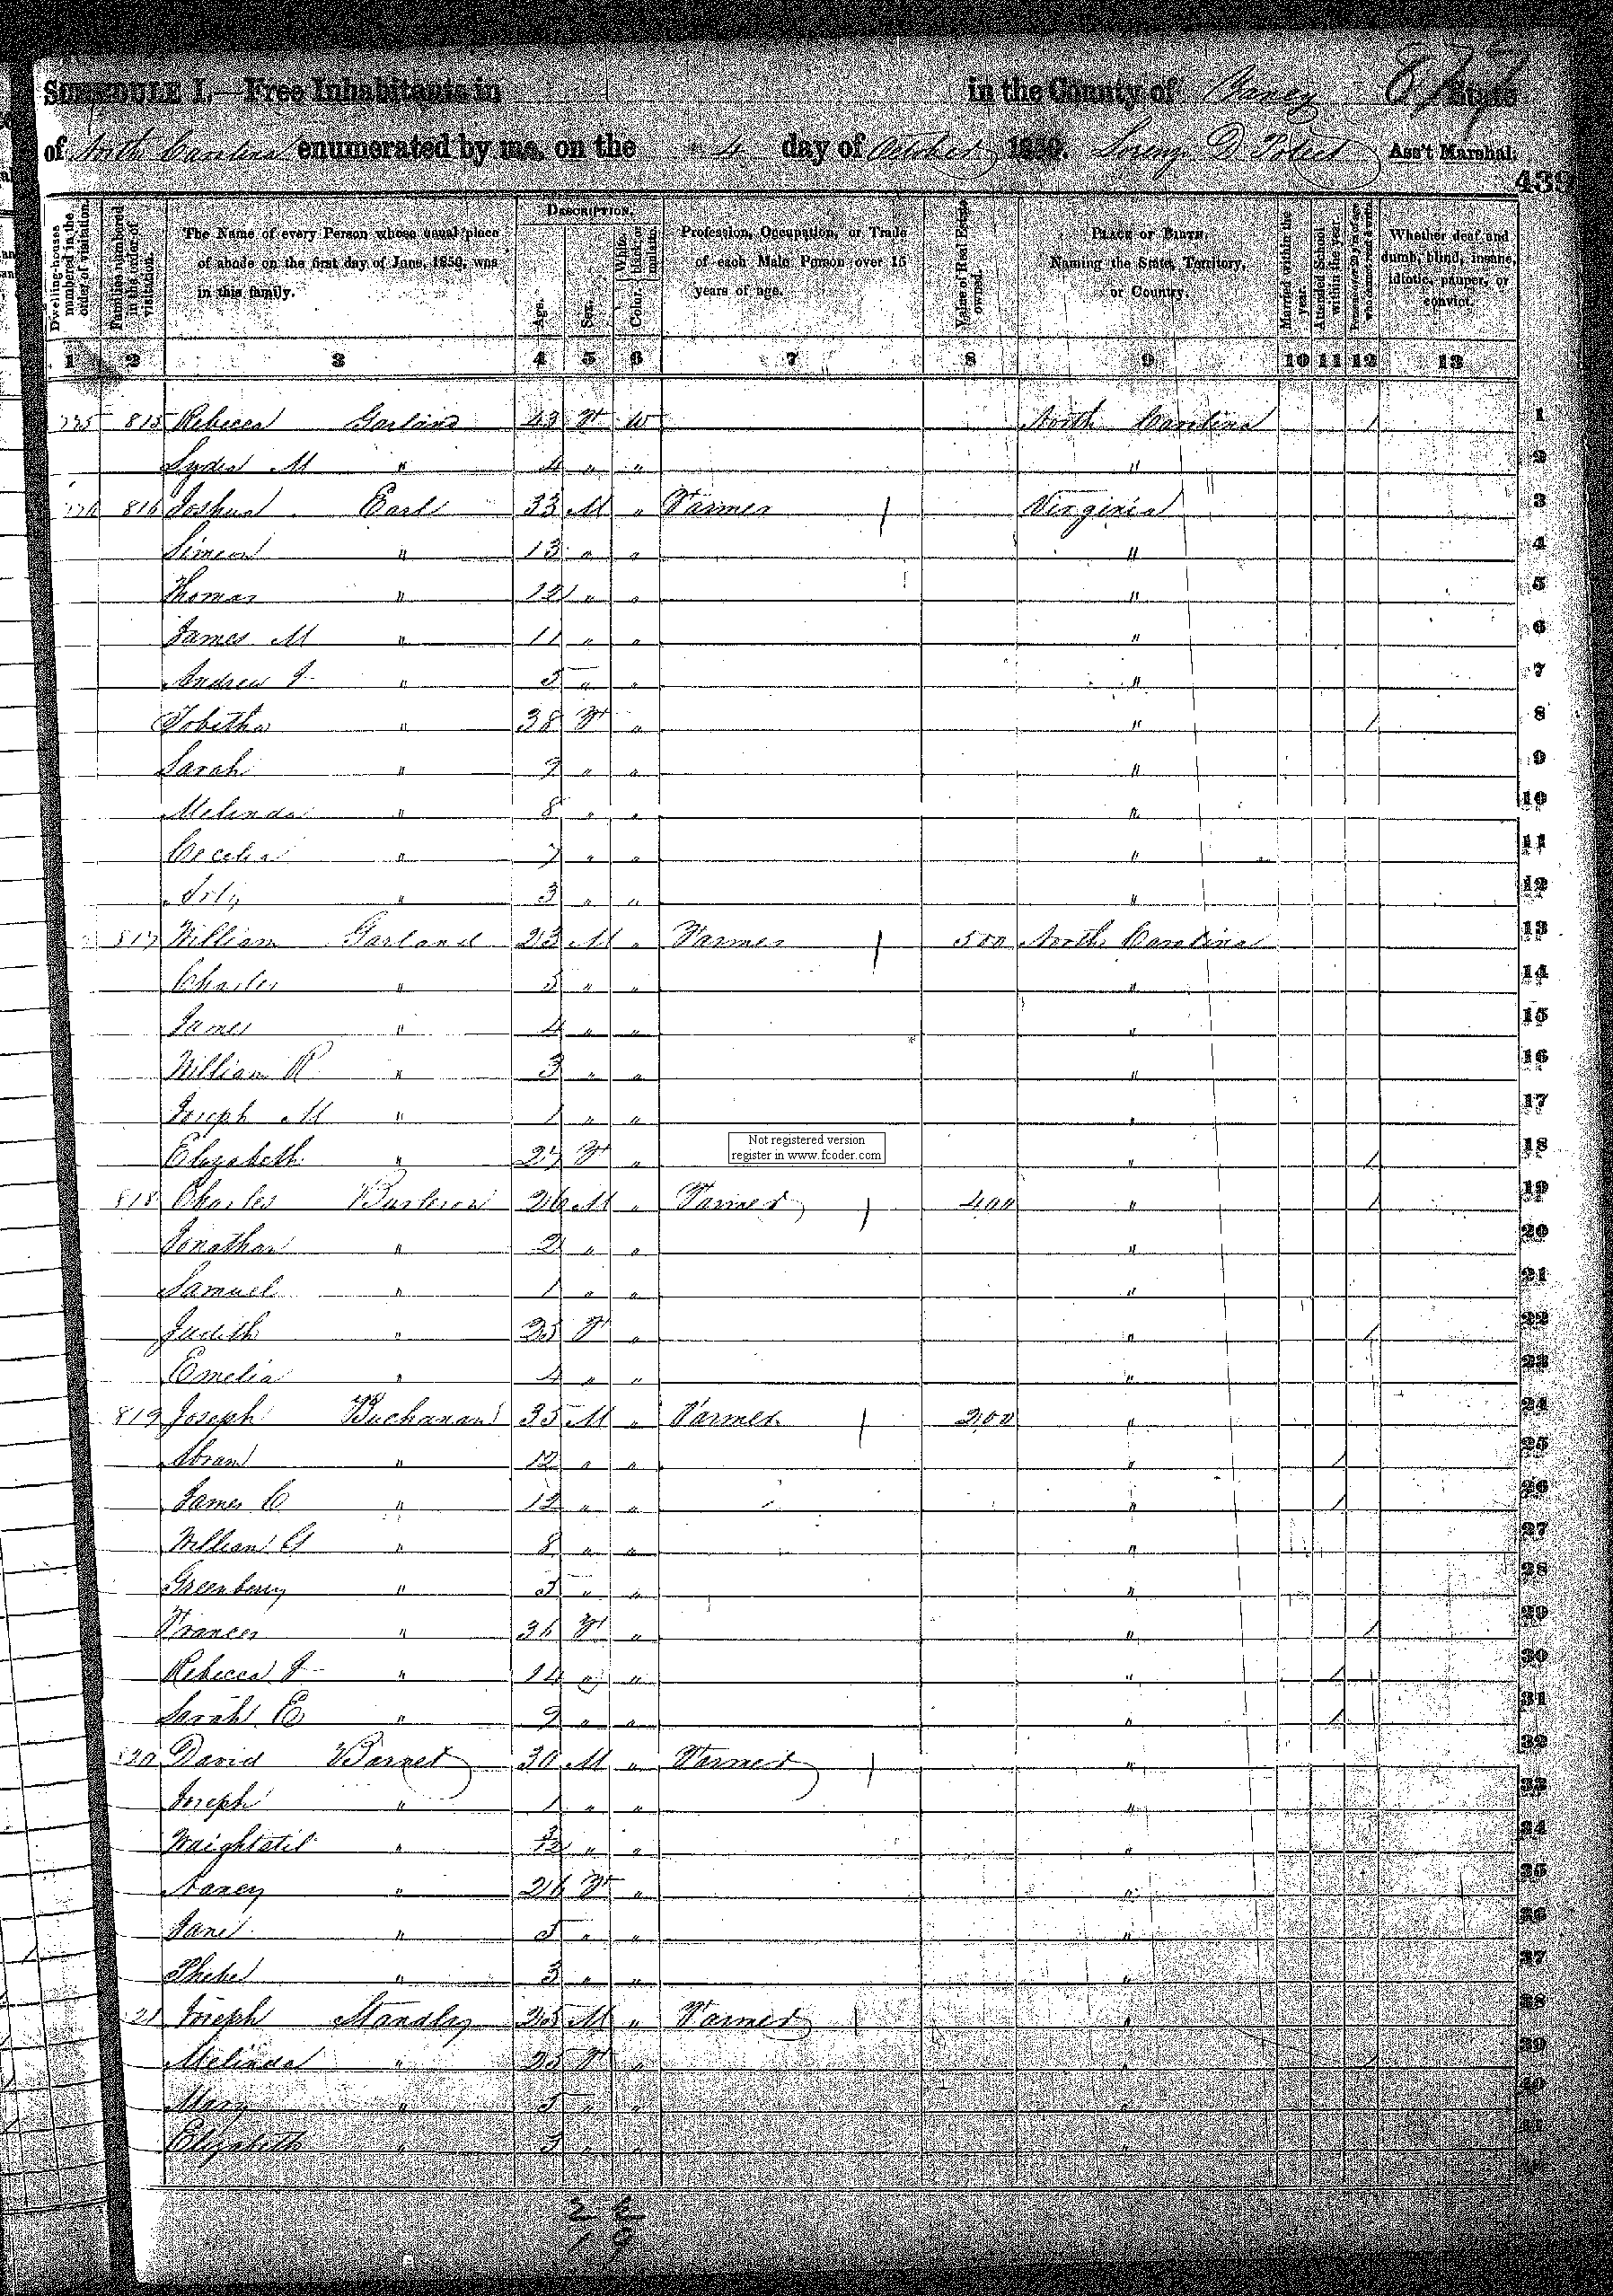 SCHEDULE I.—Free Inhabitants in in the County of Yancy State
of North Carolina enumerated by me, on the 4 day of October 1850. D Ass't Marshal.
439
Dwelling-houses numbered in the order of visitation.
Families numbered in the order of visitation.
The Name of every Person whose usual place of abode on the first day of June, 1850, was in this family.
DESCRIPTION.
Age.
Sex.
Color. White, black, or mulatto.
Profession, Occupation, or Trade of each Male Person over 15 years of age.
Value of Real Estate owned.
PLACE OF BIRTH. Naming the State, Territory, or Country.
Married within the year.
Attended School within the year.
Persons over 20 y'rs of age who cannot read & write.
Whether deaf and dumb, blind, insane, idiotic, pauper, or convict.
1 2 3 4 5 6 7 8 9 10 11 12 13
815 Rebecca Garland 43 F W North Carolina / 1
Lydia M " 4 " " " 2
816 Joshua Earl 33 M " Farmer Virginia 3
Simeon " 13 " " " 4
Thomas " 12 " " " 5
James M " 11 " " " 6
Andrew J " 5 " " " 7
Tobitha " 38 F " " / 8
Sarah " 9 " " " 9
Melinda " 8 " " " 10
Cecelia " 7 " " " 11
" 3 " " " 12
817 William Garland 23 M " Farmer 500 North Carolina 13
Charles " 5 " " " 14
James " 4 " " " 15
William R " 3 " " " 16
Joseph M " 1 " " " 17
Not registered version
register in www.fcoder.com
Elizabeth " 27 F " " / 18
818 Charles Burleson 26 M " Farmer 400 " / 19
Jonathan " 2 " " " 20
Samuel " 1 " " " 21
Judith " 25 F " " / 22
Emelia " 4 " " " 23
819 Joseph Buchanan 35 M " Farmer 200 " 24
Abram " 12 " " " / 25
James C " 12 " " " / 26
William G " 8 " " " 27
Greenberry " 5 " " " 28
Frances " 36 F " " / 29
Rebecca J " 14 " " " / 30
Sarah E " 9 " " " / 31
820 David Barnet 30 M " Farmer " 32
Joseph " 1 " " " 33
Waightstil " 3/12 " " " 34
Nancy " 26 F " " 35
Jane " 5 " " " 36
Phebe " 3 " " " 37
21 Joseph Standley 25 M " Farmer " 38
Melinda " 25 F " " / 39
Mary " 5 " " " 40
Elizabeth " 3 " " " 41